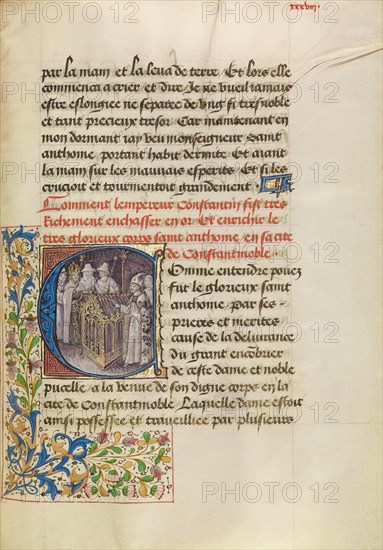 xxxviij
par la main et la leua de terre / Et lors elle
commenca a crier et dire / Je ne vueil iamais
estre eslongiee ne separee de vng si tresnoble
et tant precieux tresor / Car maintenant en
mon dormant iay veu monseigneur saint
anthome portant habit dermite / Et aiant
la main sur les mauuais esperits / Et si les
crucioit et tourmentoit grandement
Comment lempereur Constantin fist tres
Richement enchasser en or / Et enrichir le
tres glorieux corps saint anthome / en sa cite
de Constantinoble
Comme entendre pouez
fut le glorieux saint
anthome / Par ses
prieres et merites
cause de la deliurance
du grant encombrier
de ceste dame et noble
pucelle / a la venue de son digne corps en la
cite de Constantinoble / Laquelle dame estoit
ainsi possessee et trauelliee par pluseurs
PHOTO 12
PHOTO 12
PHOTO 12
PHOTO 12
PHOTO 12
PHOTO 12